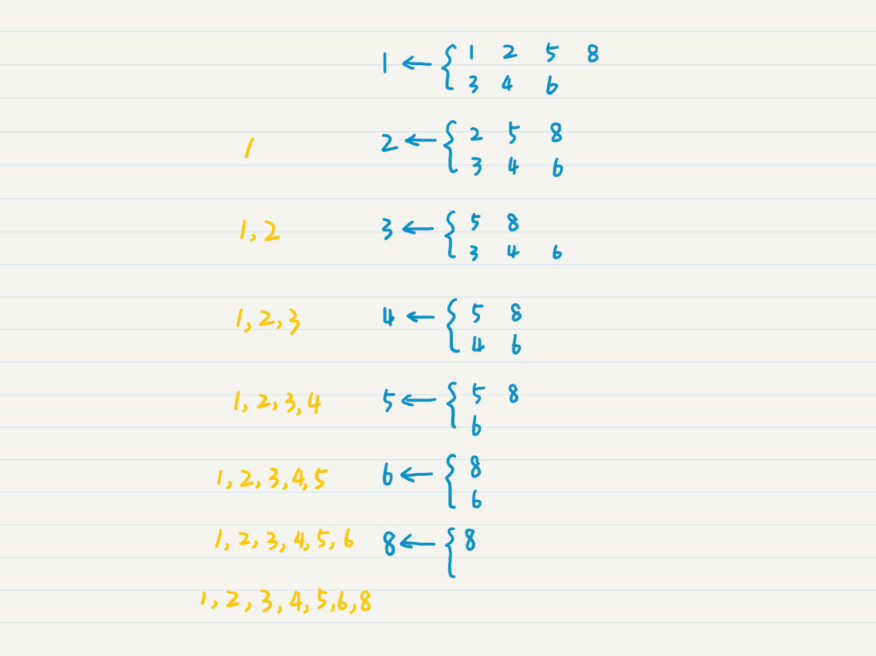 1 ← { 1 2 5 8
3 4 6
1 2 ← { 2 5 8
3 4 6
1, 2 3 ← { 5 8
3 4 6
1, 2, 3 4 ← { 5 8
4 6
1, 2, 3, 4 5 ← { 5 8
6
1, 2, 3, 4, 5 6 ← { 8
6
1, 2, 3, 4, 5, 6 8 ← { 8
1, 2, 3, 4, 5, 6, 8